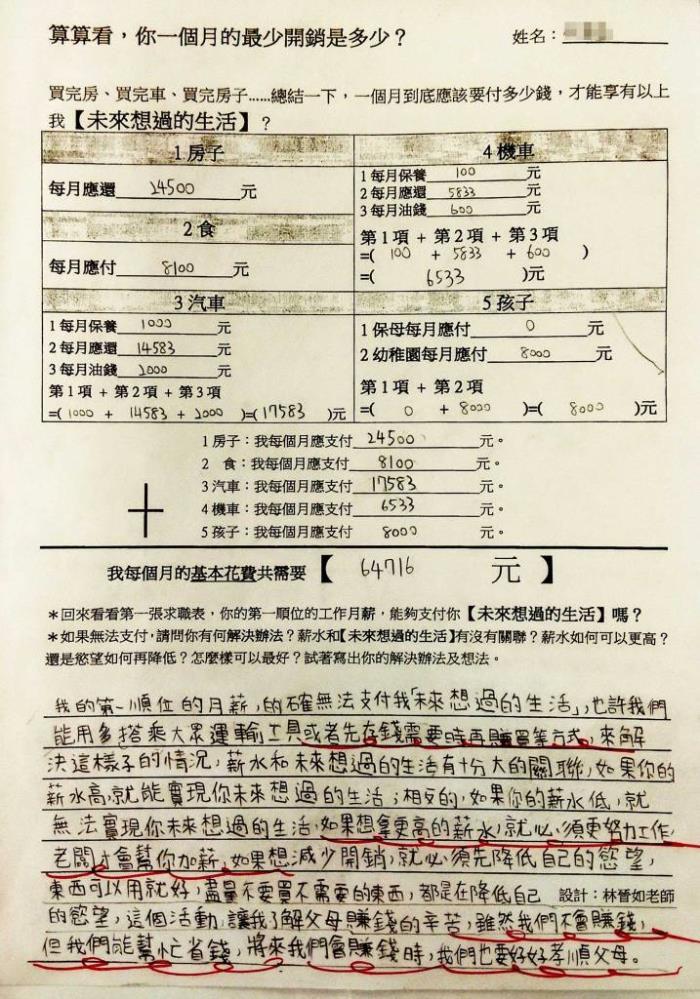 算算看，你一個月的最少開銷是多少？ 姓名：
買完房、買完車、買完房子……總結一下，一個月到底應該要付多少錢，才能享有以上
我【未來想過的生活】？
1 房子
每月應還 24500 元
2 食
每月應付 8100 元
3 汽車
1 每月保養 1000 元
2 每月應還 14583 元
3 每月油錢 2000 元
第 1 項 + 第 2 項 + 第 3 項
=( 1000 + 14583 + 2000 )=( 17583 )元
4 機車
1 每月保養 100 元
2 每月應還 5833 元
3 每月油錢 600 元
第 1 項 + 第 2 項 + 第 3 項
=( 100 + 5833 + 600 )
=( 6533 )元
5 孩子
1 保母每月應付 0 元
2 幼稚園每月應付 8000 元
第 1 項 + 第 2 項
=( 0 + 8000 )=( 8000 )元
1 房子：我每個月應支付 24500 元。
2 食：我每個月應支付 8100 元。
3 汽車：我每個月應支付 17583 元。
4 機車：我每個月應支付 6533 元。
5 孩子：我每個月應支付 8000 元。
+
我每個月的基本花費共需要【 64716 元 】
＊回來看看第一張求職表，你的第一順位的工作月薪，能夠支付你【未來想過的生活】嗎？
＊如果無法支付，請問你有何解決辦法？薪水和【未來想過的生活】有沒有關聯？薪水如何可以更高？
還是慾望如何再降低？怎麼樣可以最好？試著寫出你的解決辦法及想法。
我的第一順位的月薪，的確無法支付我「未來想過的生活」，也許我們
能用多搭乘大眾運輸工具或者先存錢需要時再購買等方式，來解
決這樣子的情況，薪水和未來想過的生活有十分大的關聯，如果你的
薪水高，就能實現你未來想過的生活；相反的，如果你的薪水低，就
無法實現你未來想過的生活，如果想拿更高的薪水，就必須更努力工作，
老闆才會幫你加薪，如果想減少開銷，就必須先降低自己的慾望，
東西可以用就好，盡量不要買不需要的東西，都是在降低自己 設計：林晉如老師
的慾望，這個活動，讓我了解父母賺錢的辛苦，雖然我們不會賺錢，
但我們能幫忙省錢，將來我們會賺錢時，我們也要好好孝順父母。